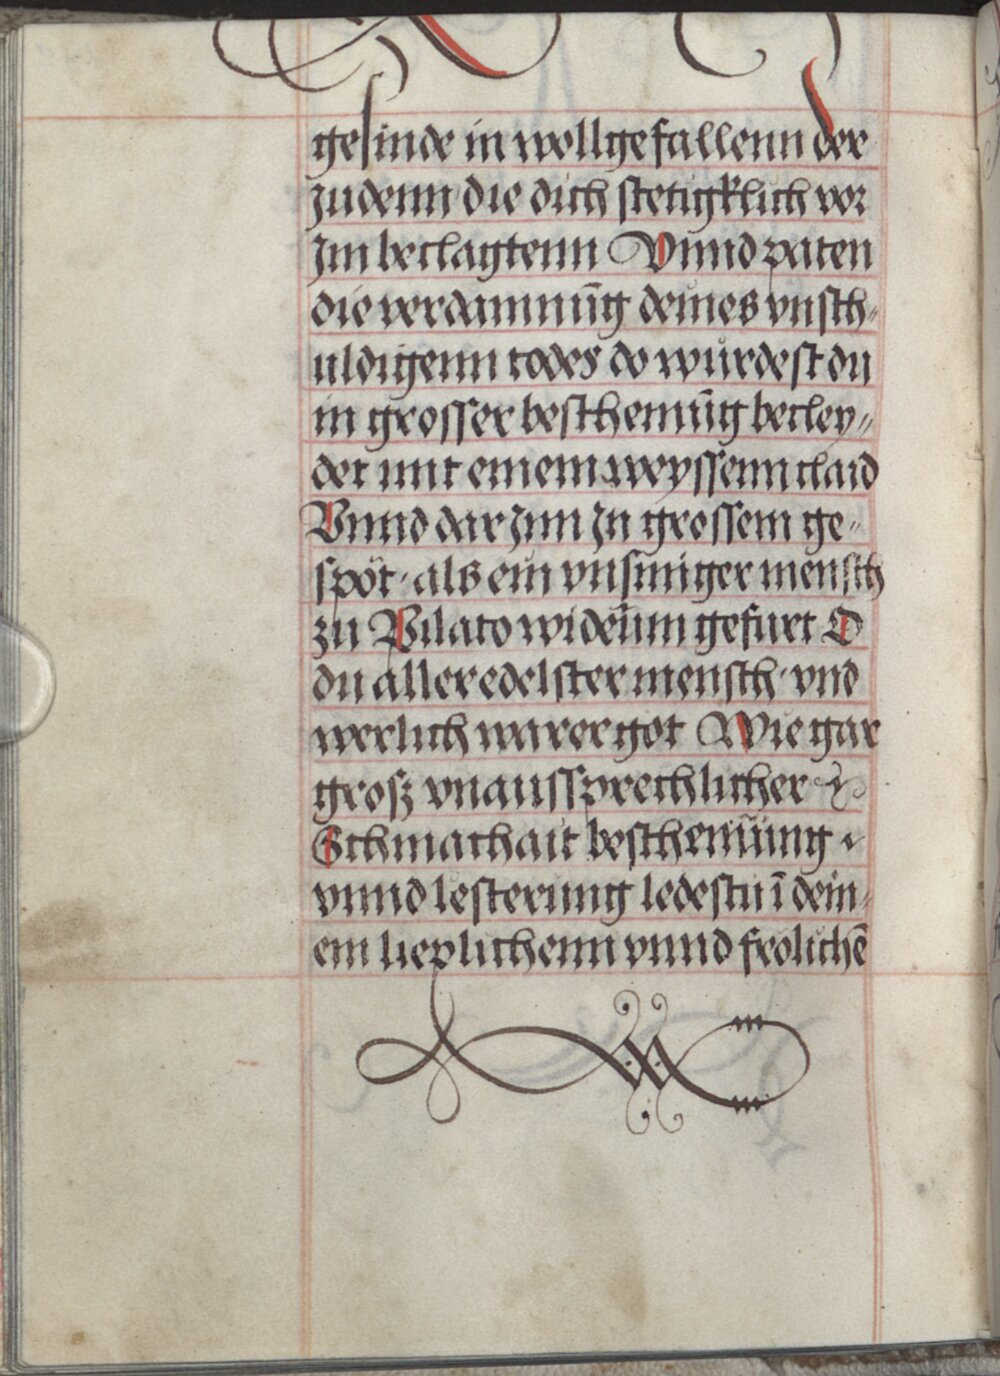 gesinde in wollgefallenn der
Judenn die dich stetigklich vor
Jm beclagtenn Vnnd paten
die verdammūg deines vnsch„
uldigenn todes do wurdest du
in grosser beschemūg becley„
det mit einem weyssenn claid
Vnnd dar Jnn Jn grossem ge„
spöt · als ein vnsiniger mensch
zu Pilato widerum gefurt O
du aller edelster mensch · vnd
werlich warer got Wie gar
grosz vnaussprechlicher
Schmachait beschemūung
vnnd lesterung ledestu ī dein„
em lieplichenn vnnd frolichē